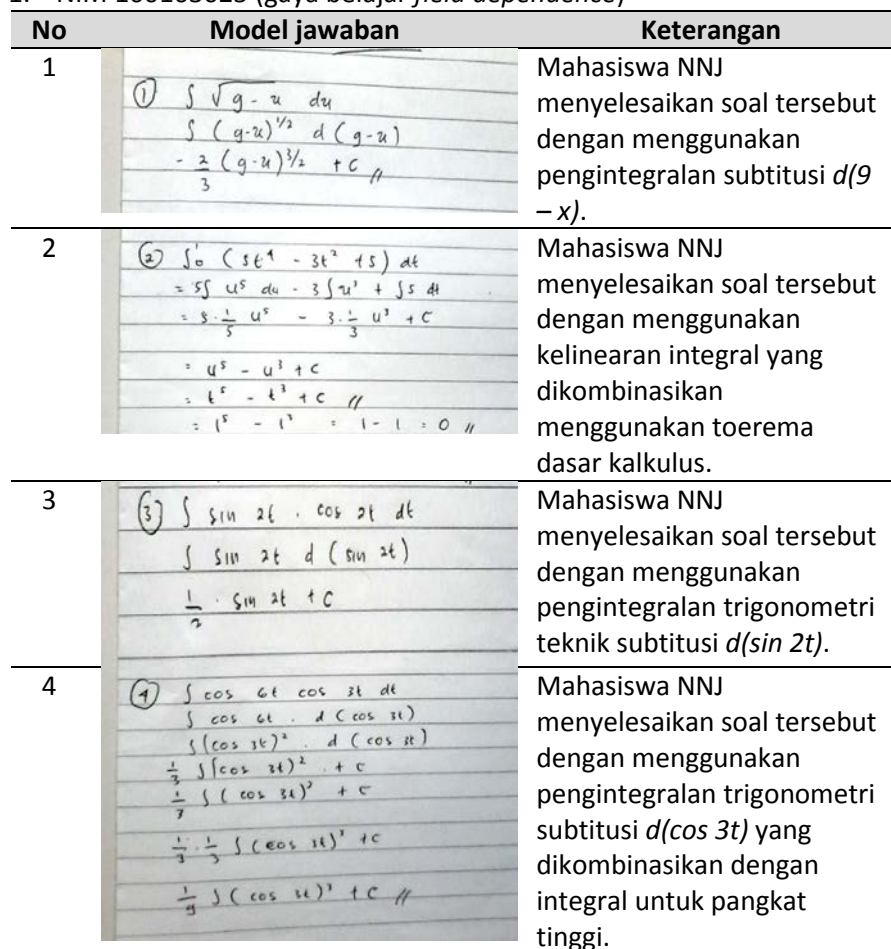 No Model jawaban Keterangan
1
① ∫ √9-x dx
∫ (9-x)^1/2 d (9-x)
- 2/3 (9-x)^3/2 + C //
Mahasiswa NNJ
menyelesaikan soal tersebut
dengan menggunakan
pengintegralan subtitusi d(9
– x).
2
② ∫₀¹ (5t⁴ - 3t² + 5) dt
= 5∫ u⁵ du - 3∫u² + ∫5 dt
= 5 · 1/5 u⁵ - 3 · 1/3 u³ + C
= u⁵ - u³ + C
= t⁵ - t³ + C //
= 1⁵ - 1³ = 1 - 1 = 0 //
Mahasiswa NNJ
menyelesaikan soal tersebut
dengan menggunakan
kelinearan integral yang
dikombinasikan
menggunakan toerema
dasar kalkulus.
3
③ ∫ sin 2t . cos 2t dt
∫ sin 2t d (sin 2t)
1/2 . sin 2t + C
Mahasiswa NNJ
menyelesaikan soal tersebut
dengan menggunakan
pengintegralan trigonometri
teknik subtitusi d(sin 2t).
4
④ ∫ cos 6t cos 3t dt
∫ cos 6t . d (cos 3t)
∫(cos 3t)² . d (cos 3t)
1/3 ∫(cos 3t)² . + C
1/3 ∫ (cos 3t)³ + C
1/3 . 1/3 ∫ (cos 3t)³ + C
1/9 ∫ (cos 3t)³ + C //
Mahasiswa NNJ
menyelesaikan soal tersebut
dengan menggunakan
pengintegralan trigonometri
subtitusi d(cos 3t) yang
dikombinasikan dengan
integral untuk pangkat
tinggi.